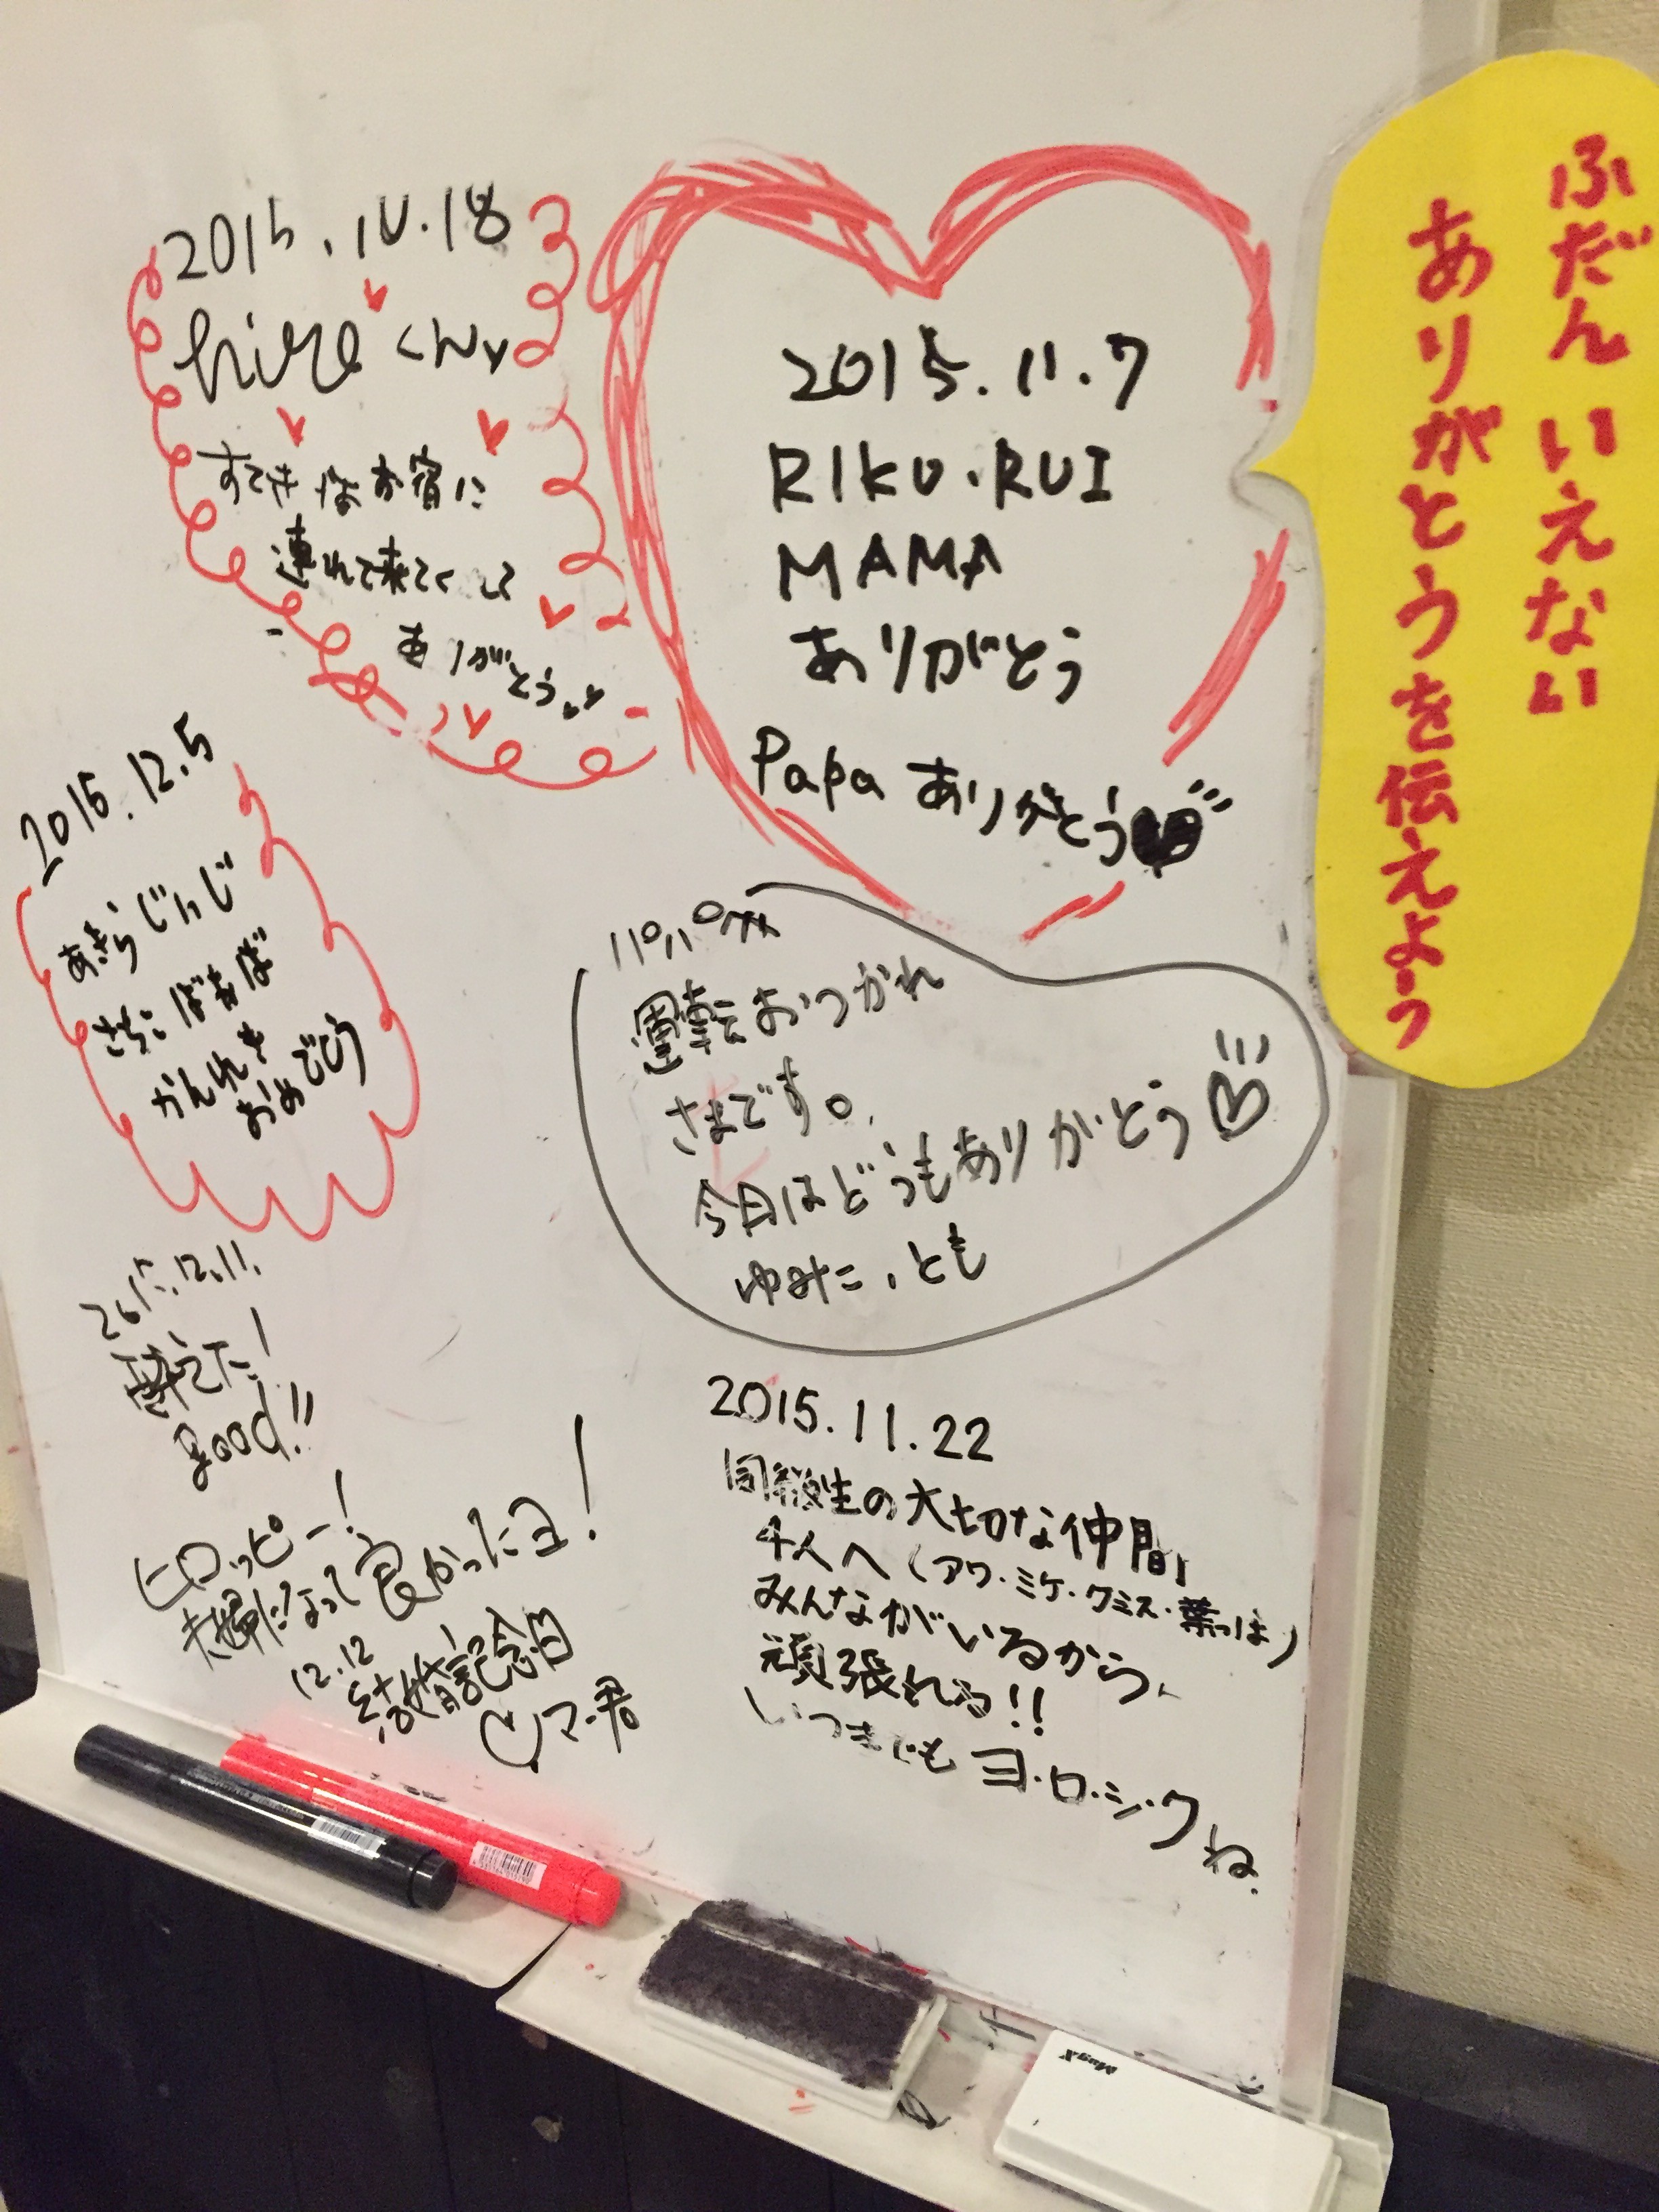 ふだん いえない
ありがとうを伝えよう
2015.10.18
hiro くん
すてきなお宿に
連れて来てくれて
ありがとう
2015.11.7
RIKU・RUI
MAMA
ありがとう
Papa ありがとう
2015.12.5
あきらじいじ
さちこばあば
かんれき
おめでとう
パパ
運転おつかれ
さまです。
今日はどうもありがとう
ゆみこ、とも
2015.12.11.
酔えた!
good!!
2015.11.22
同級生の大切な仲間
4人へ(アワ・ミケ・クミス・葉っぱ)
みんながいるから、
頑張れる!!
いつまでもヨ・ロ・シ・クね.
ヒロッピー!
夫婦になって良かったヨ!
12.12
結婚記念日
マ君
MagX